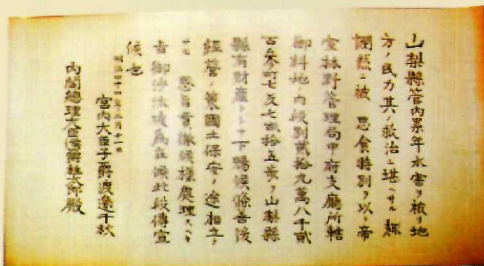 山梨縣管内累年水害ヲ被リ地
方ノ民力其ノ救治ニ堪ヘサル趣
憫然ニ被 思食特別ヲ以テ帝
室林野管理局甲府支廳所轄
御料地ノ内段別貳拾九萬八千貳
百參町七反七畝拾五歩ヲ山梨縣
縣有財産トシテ下賜候條善後
經營ノ業國土保安ノ途相立
恩旨貫徹候樣處理スヘキ
旨御沙汰被為在候此段傳宣
候也
明治四十四年三月十一日
宮内大臣子爵渡邊千秋
内閣總理大臣侯爵桂太郎殿